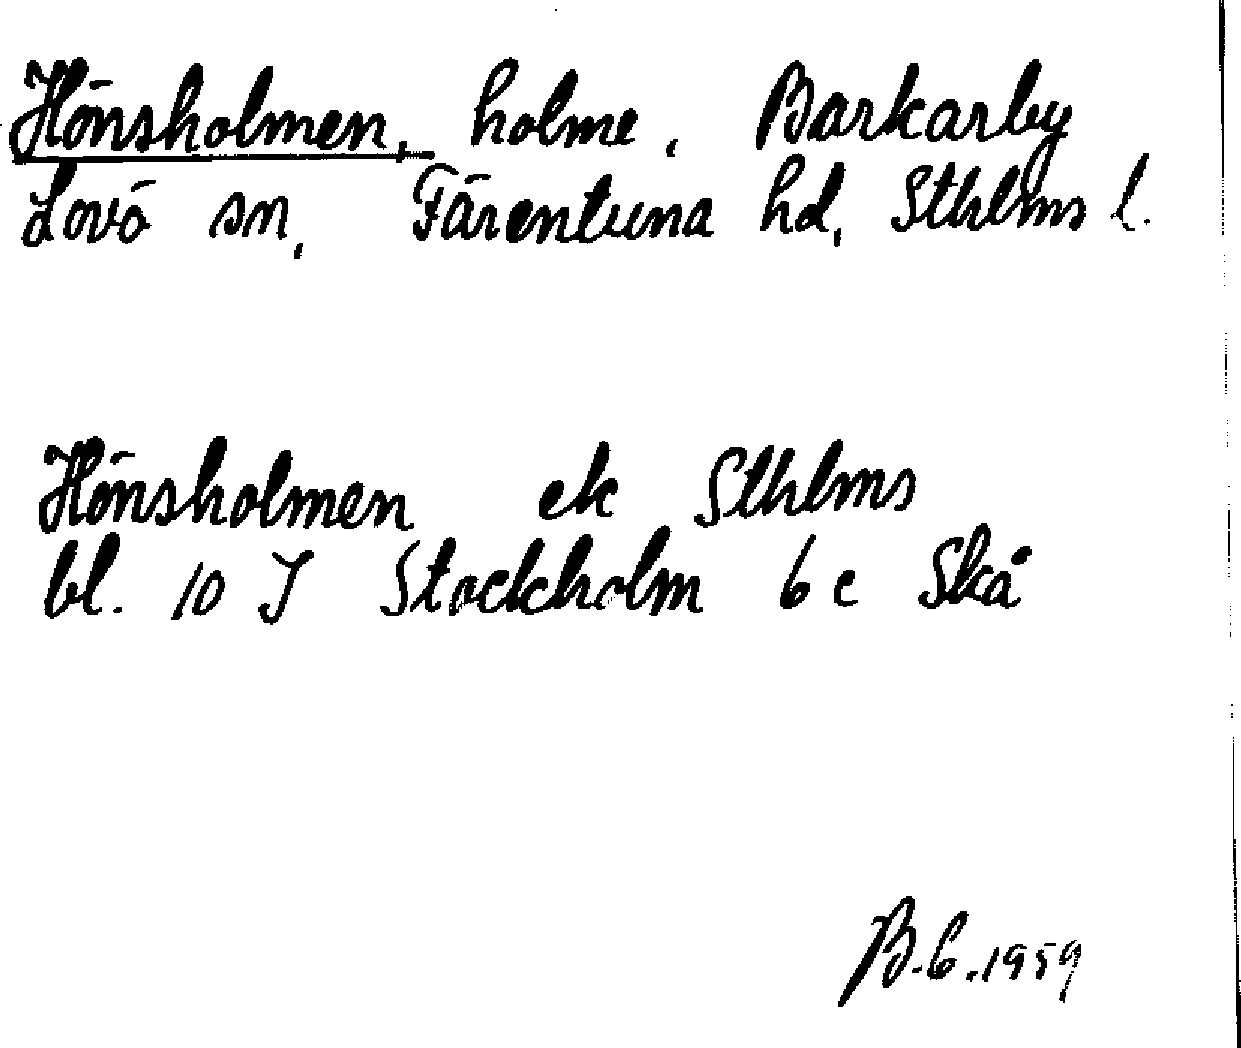 Hönsholmen, holme, Barkarby
Lovö sn, Färentuna hd, Sthlms l.
Hönsholmen ek Sthlms
bl. 10 I Stockholm 6 c Skå
B.G. 1959